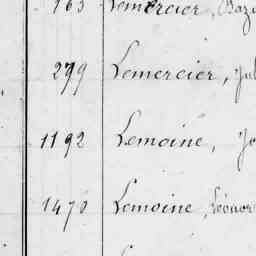 163 Lemercier,
299 Lemercier, Jul
1192 Lemoine, Jo
1470 Lemoine, Léonor